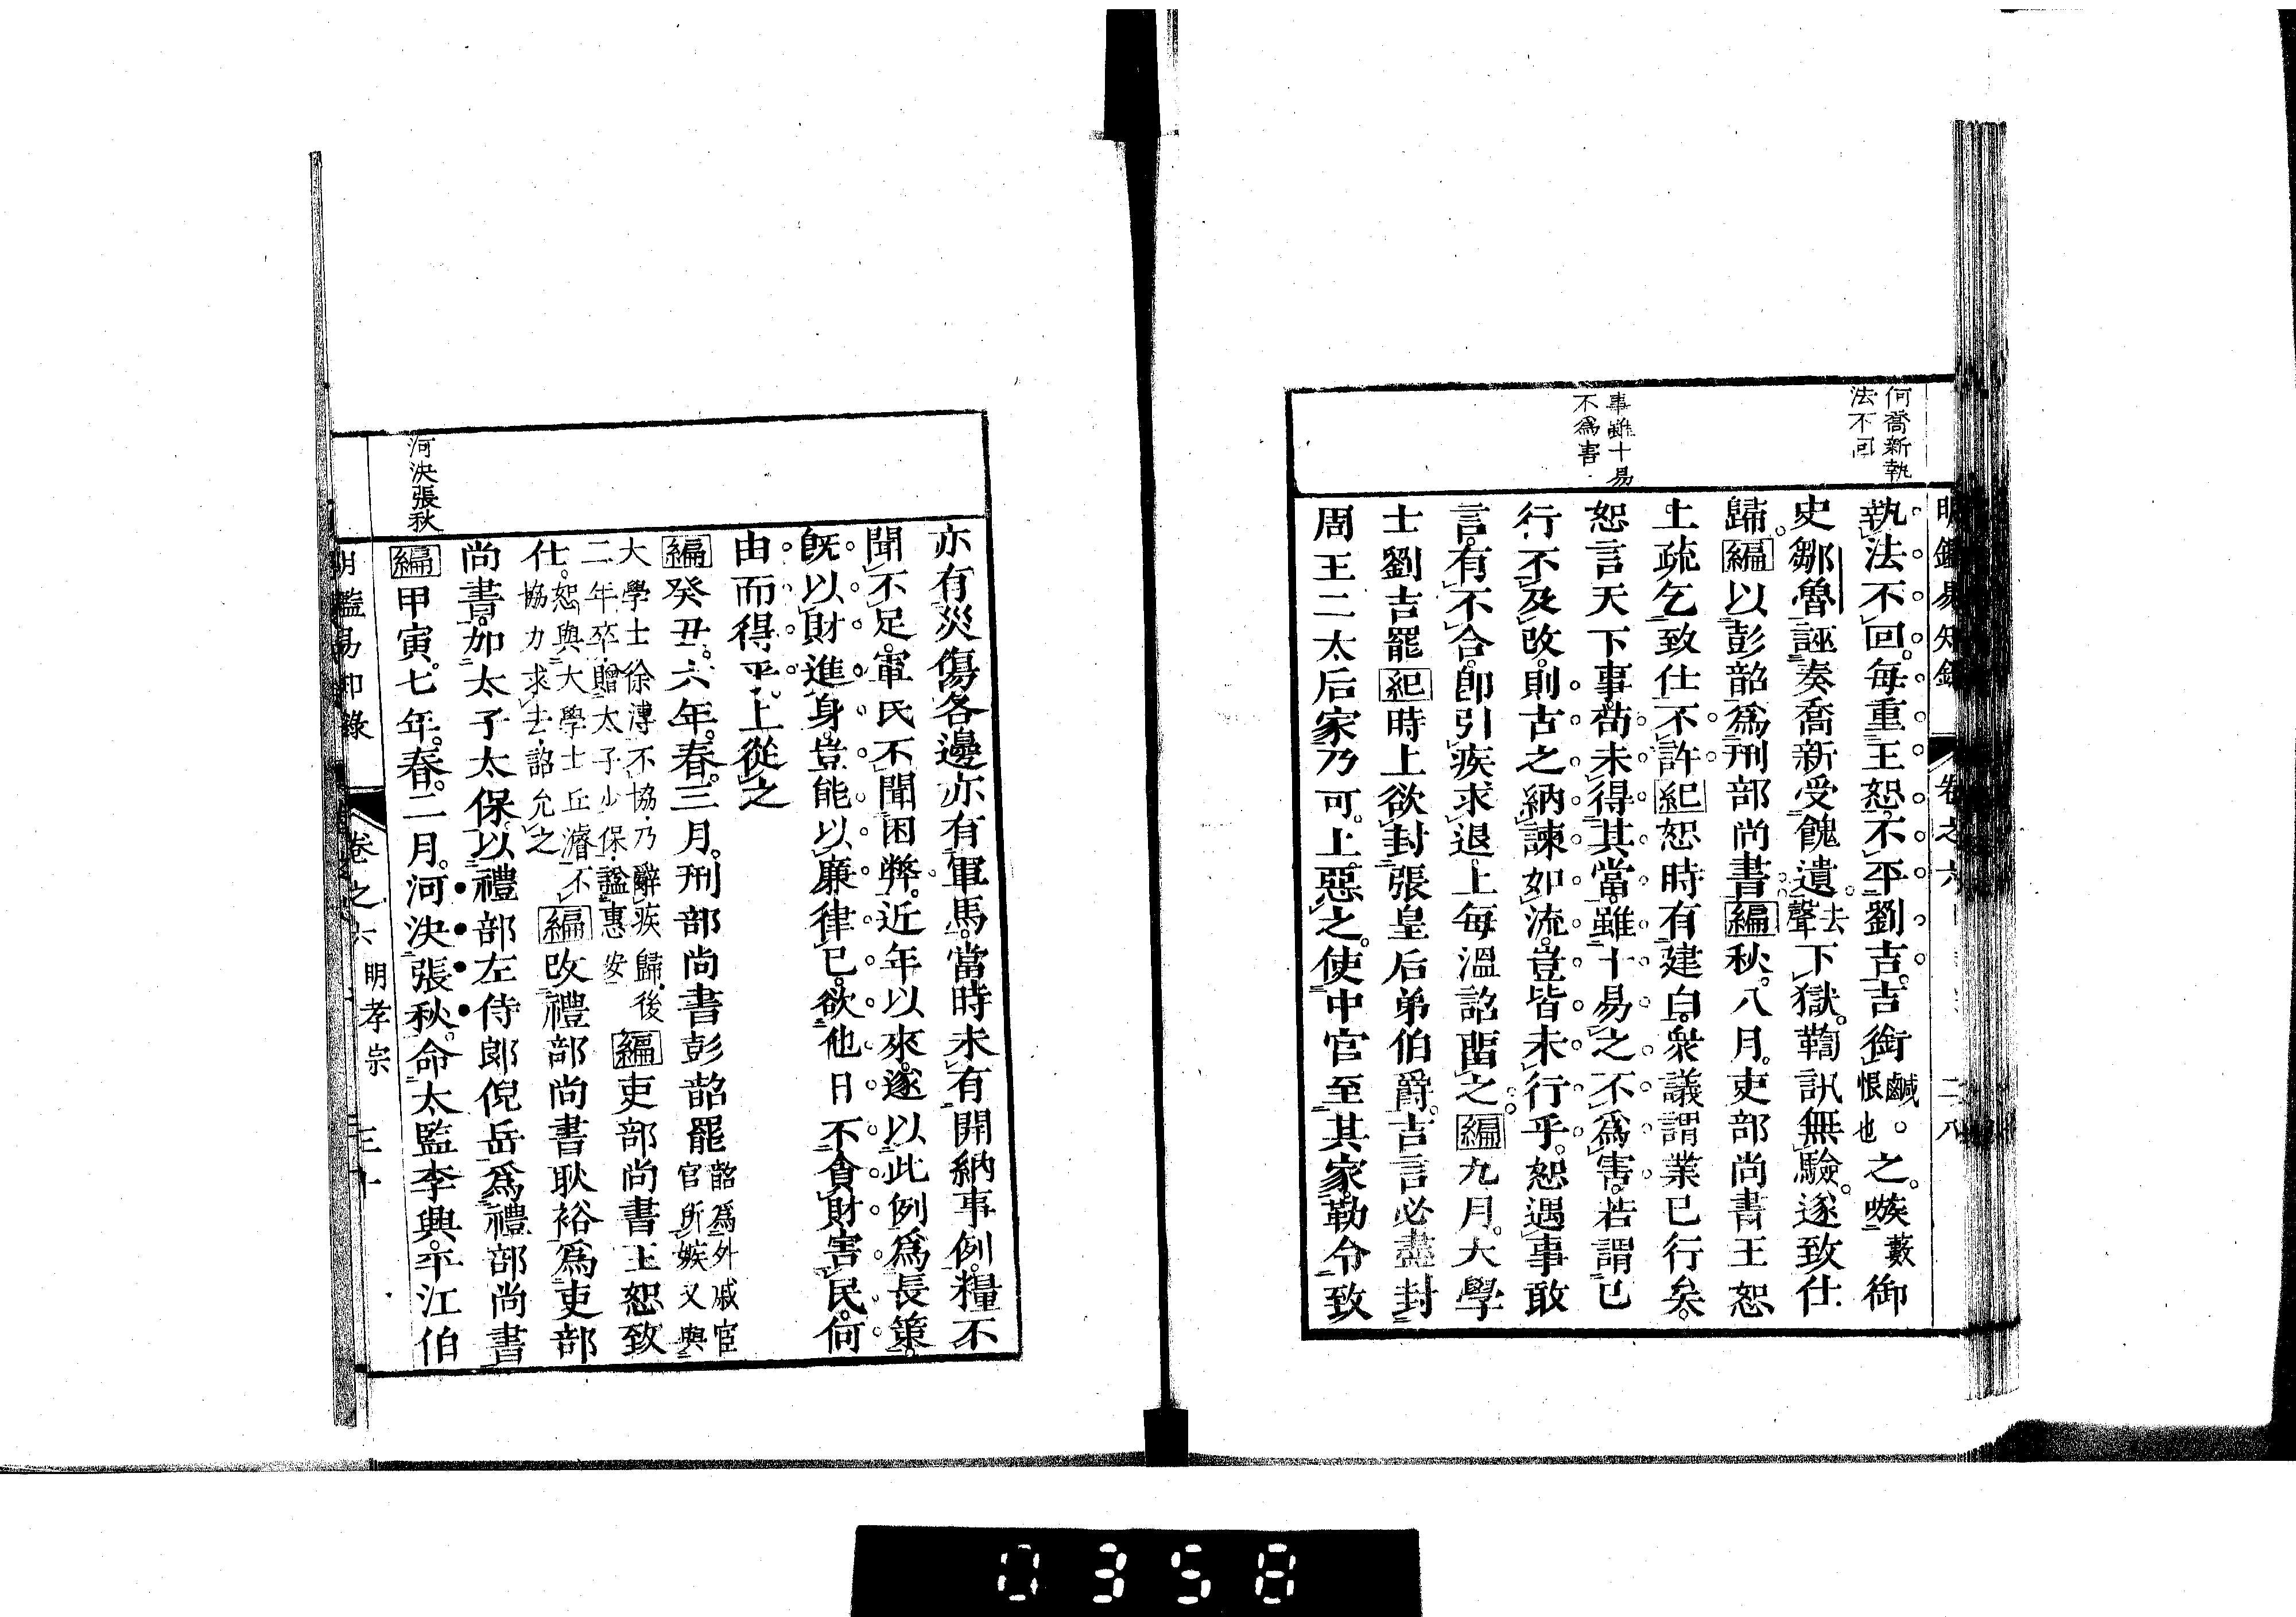 何喬新執
法不回
事雖十易
不爲害
明鑑易知錄 卷之六 二八
執法不回。每重王恕。不平劉吉。吉銜鹹。恨也之。嗾藪御
史鄒魯誣奏喬新受餽遺去聲。下獄。鞫訊無驗。遂致仕
歸。編以彭韶爲刑部尚書。編秋。八月。吏部尚書王恕
上疏乞致仕。不許。紀恕時有建白。衆議謂業已行矣。
恕言天下事。苟未得其當。雖十易之不爲害。若謂已
行不及改。則古之納諫如流。豈皆未行乎。恕遇事敢
言。有不合。卽引疾求退。上每溫詔畱之。編九月。大學
士劉吉罷紀時上欲封張皇后弟伯爵。吉言必盡封
周王二太后家乃可。上惡之。使中官至其家。勒令致
亦有災傷各邊亦有軍馬。當時未有開納事例。糧不
聞不足。軍民不聞困弊。近年以來。遂以此例爲長策。
旣以財進身。豈能以廉律己。欲他日不貪財害民。何
由而得乎。上從之
編癸丑。六年。春。三月。刑部尚書彭韶罷韶爲外戚宦官所嫉又與
大學士徐溥不協。乃辭疾歸。後二年卒。贈太子少保。諡惠安編吏部尚書王恕致
仕。恕與大學士丘濬不協力求去。詔允之編改禮部尚書耿裕爲吏部
尚書。加太子太保。以禮部左侍郞倪岳爲禮部尚書
編甲寅。七年。春。二月。河決張秋。命太監李興。平江伯
河決張秋
明鑑易知錄 卷之六 明孝宗
0358